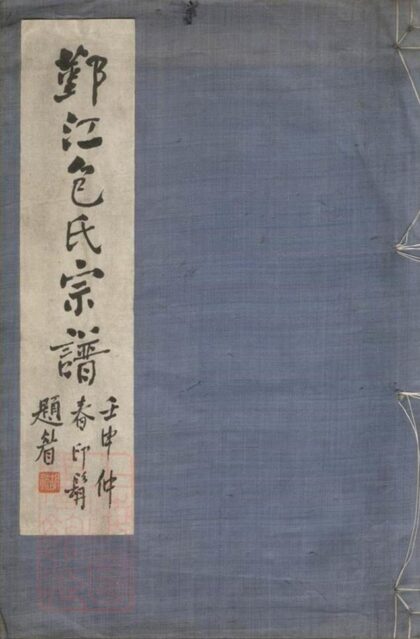 鄞江包氏宗譜
壬申仲
春印髯
題眉